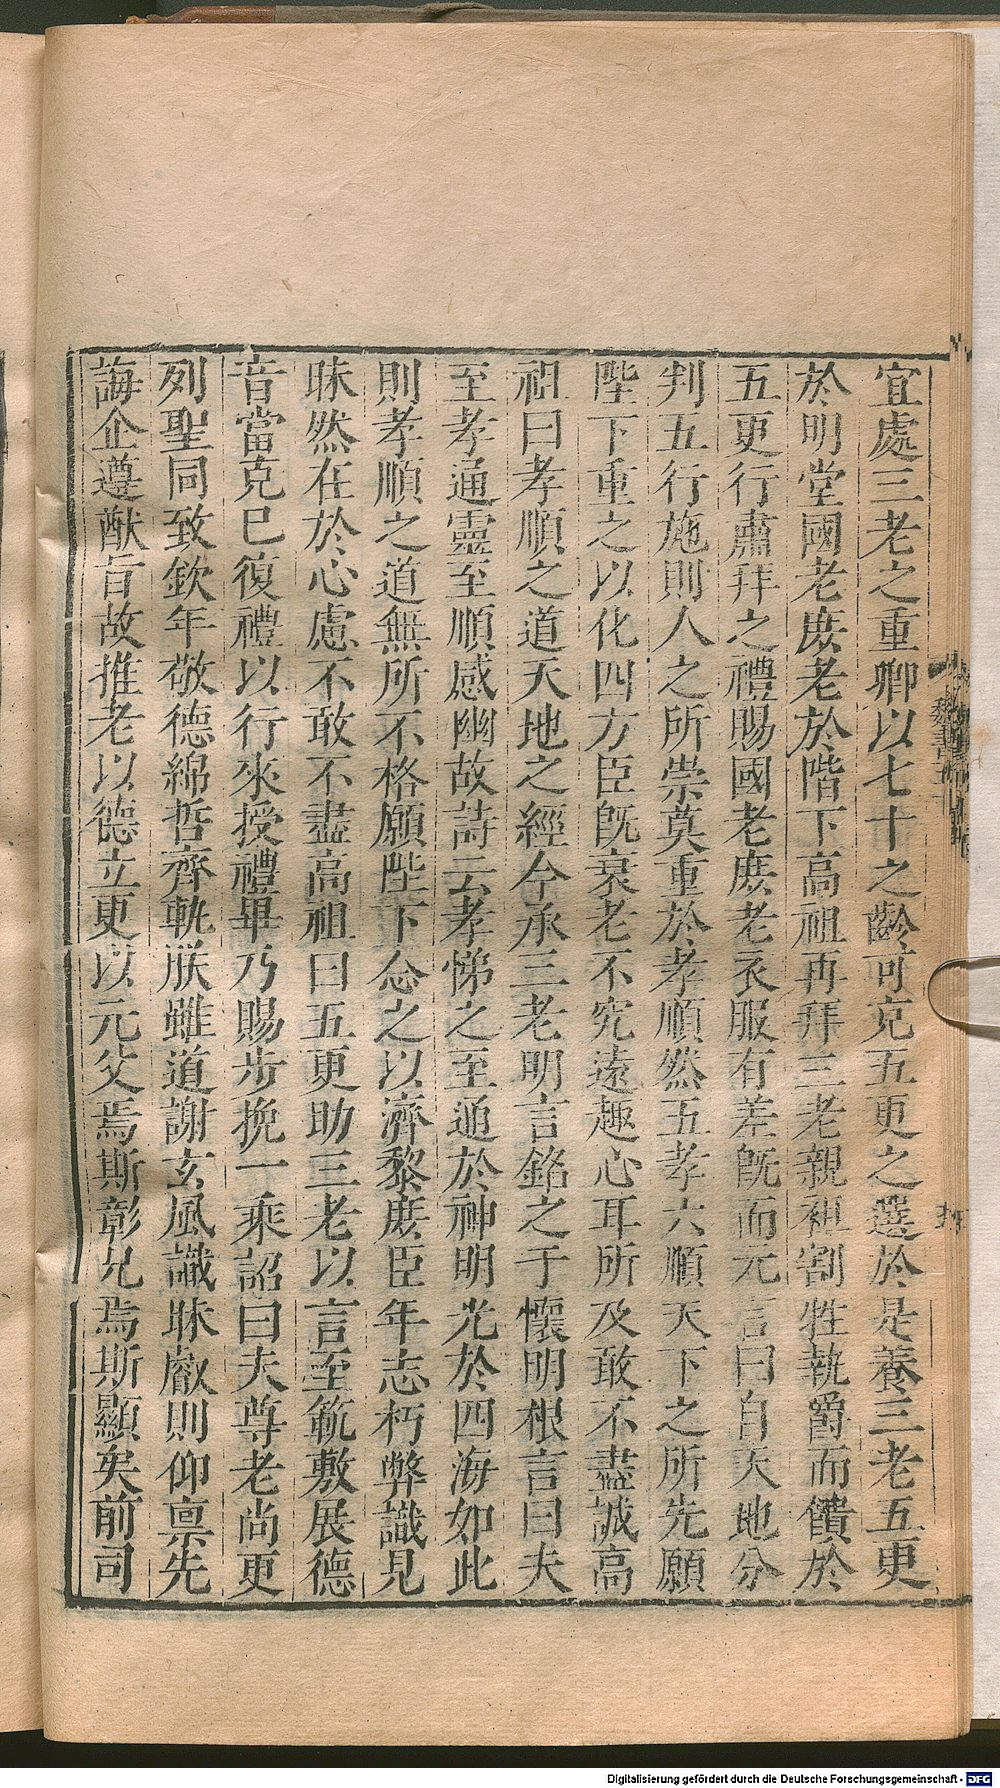 宜處三老之重卿以七十之齡可充五更之選於是養三老五更
於明堂國老庶老於階下高祖再拜三老親袒割牲執爵而饋於
五更行肅拜之禮賜國老庶老衣服有差旣而元言曰自天地分
判五行施則人之所崇莫重於孝順然五孝六順天下之所先願
陛下重之以化四方臣旣衰老不究遠趣心耳所及敢不盡誠高
祖曰孝順之道天地之經今承三老明言銘之于懷明根言曰夫
至孝通靈至順感幽故詩云孝悌之至通於神明光於四海如此
則孝順之道無所不格願陛下念之以濟黎庶臣年志朽弊識見
昧然在於心慮不敢不盡高祖曰五更助三老以言至範敷展德
音當克已復禮以行來授禮畢乃賜步挽一乘詔曰夫尊老尚更
列聖同致欽年敬德綿哲齊軌朕雖道謝玄風識昧叡則仰禀先
誨企遵猷旨故推老以德立更以元父焉斯彰兄焉斯顯矣前司
Digitalisierung gefördert durch die Deutsche Forschungsgemeinschaft - DFG